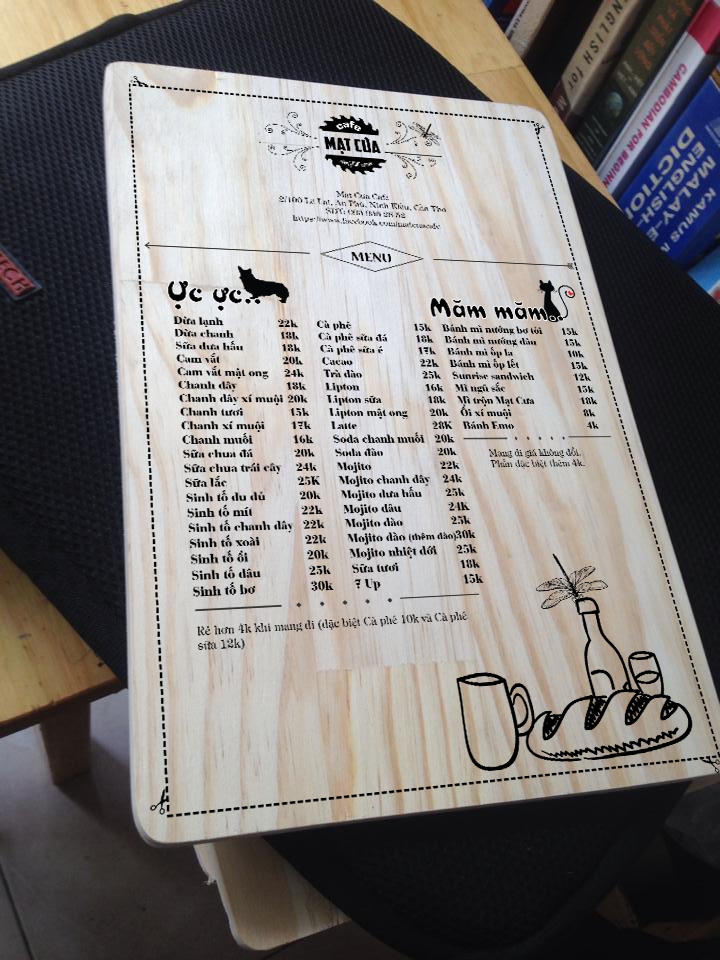 cafe
MẠT CƯA
Mạt Cưa Cafe
MENU
Ực ực..
Dừa lạnh 22k
Dừa chanh 18k
Sữa dưa hấu 18k
Cam vắt 20k
Cam vắt mật ong 24k
Chanh dây 18k
Chanh dây xí muội 20k
Chanh tươi 15k
Chanh xí muội 17k
Chanh muối 16k
Sữa chua đá 20k
Sữa chua trái cây 24k
Sữa lắc 25K
Sinh tố du dủ 20k
Sinh tố mít 22k
Sinh tố chanh dây 22k
Sinh tố xoài 22k
Sinh tố ổi 20k
Sinh tố dâu 25k
Sinh tố bơ 30k
Cà phê 15k
Cà phê sữa đá 18k
Cà phê sữa é 17k
Cacao 22k
Trà đào 25k
Lipton 16k
Lipton sữa 18k
Lipton mật ong 20k
Latte 28K
Soda chanh muối 20k
Soda đào 20k
Mojito 22k
Mojito chanh dây 24k
Mojito dưa hấu 25k
Mojito dâu 24K
Mojito đào 25k
Mojito đào (thêm đào) 30k
Mojito nhiệt đới 25k
Sữa tươi 18k
7 Up 15k
Rẻ hơn 4k khi mang đi (đặc biệt Cà phê 10k và Cà phê
sữa 12k)
Măm măm..
Bánh mì nướng bơ tỏi 15k
Bánh mì nướng dâu 15k
Bánh mì ốp la 10k
Bánh mì ốp lết 15k
Sunrise sandwich 12k
Mì ngũ sắc 15k
Mì trộn Mạt Cưa 18k
Ổi xí muội 8k
Bánh Emo 4k
Mang đi giá không đổi.
Phần đặc biệt thêm 4k.
ENGLISH for
CAMBODIAN FOR BEGINN
KAMUS
MALAY-E
ENGLISH
DICTION